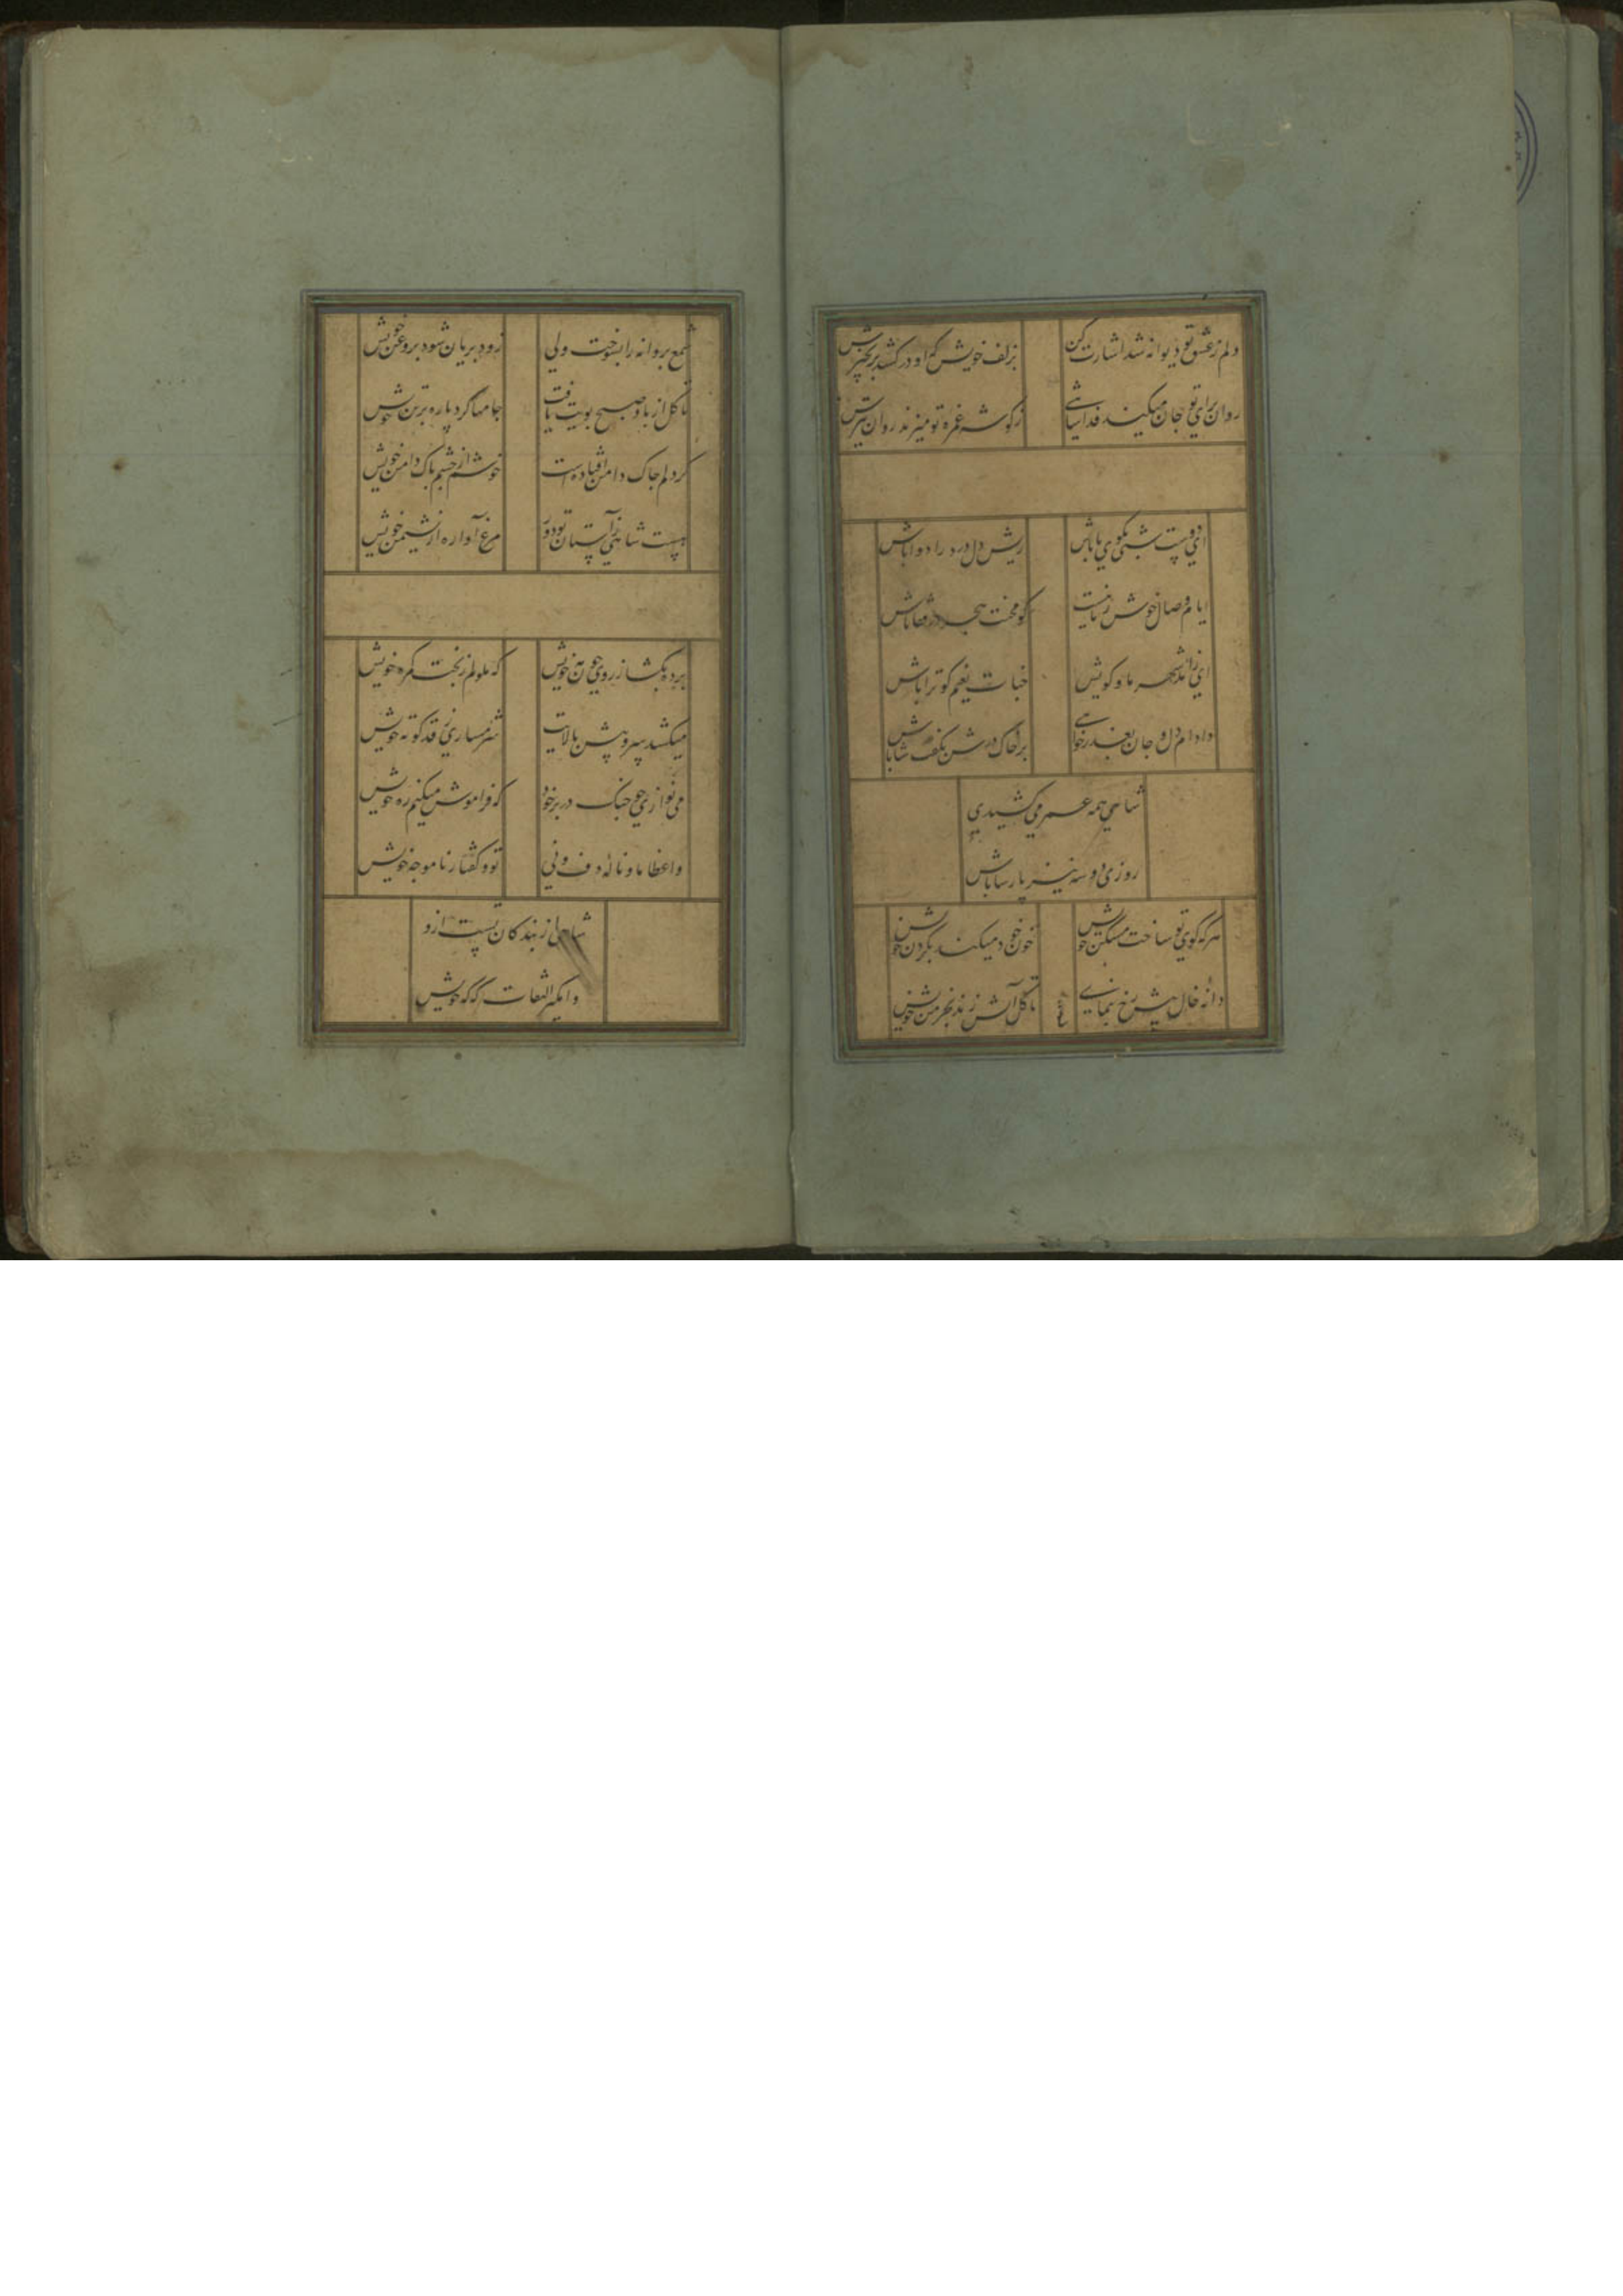 دلم ز عشق تو دیوانه شد اشارت کن
بزلف خویش که او در کشد بزنجیرش
روان برای تو جان میکند فدا شاهی
ز گوشه غمزه تو میزند روان تیرش
ای دوست شبی بکوی ما باش
ریش دل درد را دوا باش
ایام وصال خوش زمانیست
گو محنت هجر در قفا باش
ای رانده شهر ما و کویش
خبات بغم کو ترا باش
دادم دل و جان بعذر خواهی
بر خاک درش بگفت شاباش
شاهی همه عمر می کشیدی
روزی دو سه نیز پارسا باش
هر که کوی تو ساخت مسکن خویش
خون خود میکند بگردن خویش
دانهٔ خال پیش رخ بنمای
تا گل آتش زند بخرمن خویش
شمع پروانه را بسوخت ولی
زود بریان شود بروغن خویش
تا گل از باد صبح بویت یافت
جامها کرد پاره بر تن خویش
کر دلم چاک دامن افتادست
خوشم از چشم پاک دامن خویش
هست شاهی ز آستان تو دور
مرغ آواره از نشیمن خویش
پرده بگشا ز روی چون مه خویش
که ملولم ز بخت گمره خویش
میکشد سرو پیش بالایت
شرمساری ز قد کوته خویش
می نوازی چو چنگ در بر خود
که فراموش میکنم ره خویش
واعظا ما و نالهٔ دف و نی
تو و گفتار ناموجه خویش
شاهی از بندگان تست ازو
وامگیر التفات گه گه خویش